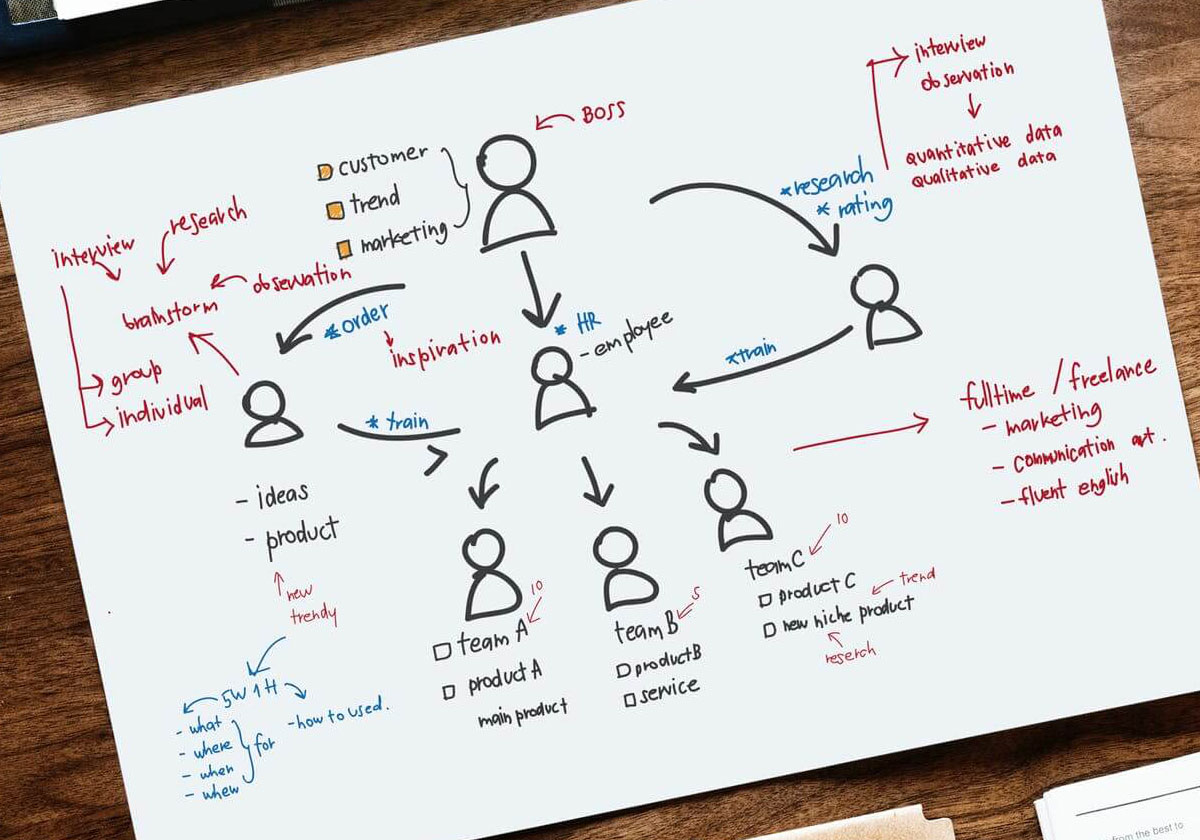 BOSS
customer
trend
marketing
interview
observation
quantitative data
qualitative data
*research
* rating
research
interview
observation
brainstorm
group
individual
*order
inspiration
* HR
- employee
*train
* train
- ideas
- product
new
trendy
5W 1H
- what
- where
- when
- whew
for
- how to used.
fulltime / freelance
- marketing
- communication art.
- fluent english
10
team A
product A
main product
5
team B
product B
service
10
team C
product C
trend
new niche product
reserch
from the best to